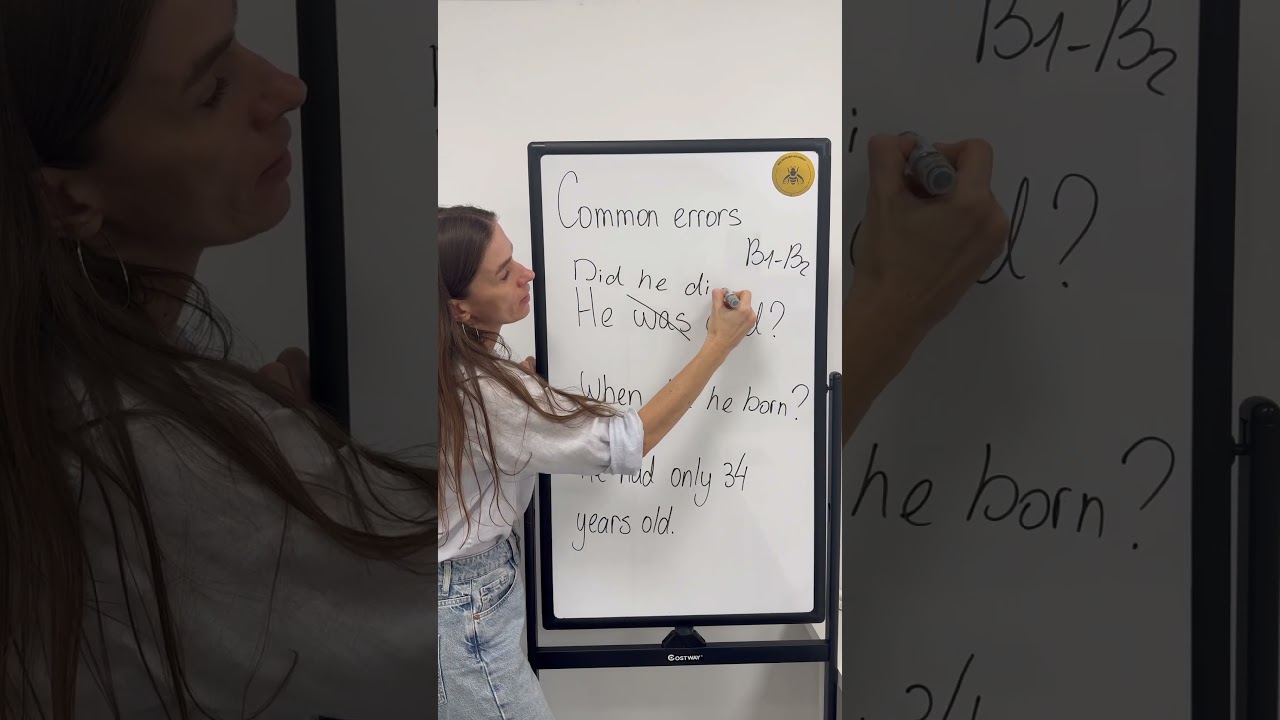 Common errors
B1-B2
Did he di
He was d?
When he born?
had only 34
years old.
COSTWAY
B1-B2
d?
he born?